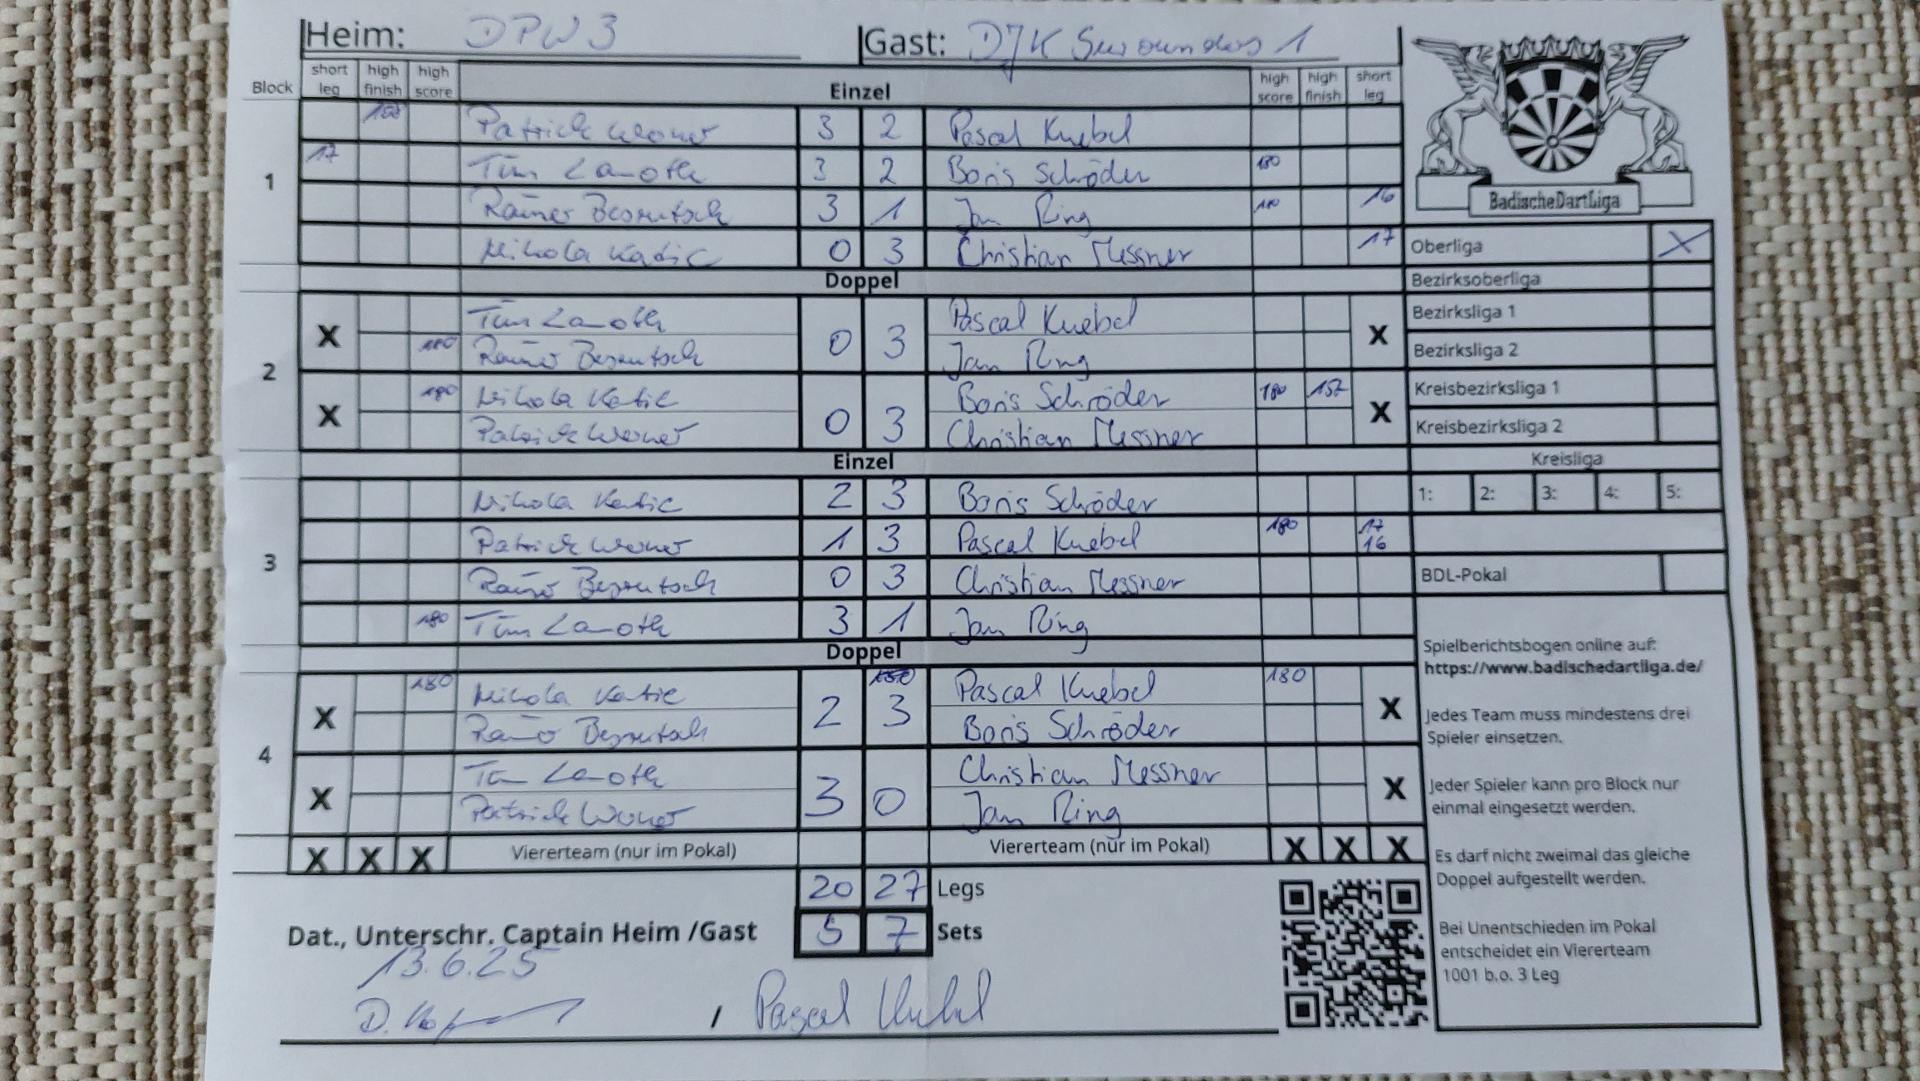 Heim: DPW 3 Gast: DJK Surounders 1
Block short leg high finish high score Einzel high score high finish short leg
1
Patrick Werner 3 2 Pascal Knebel
17 Tim Lamoth 3 2 Boris Schröder 180
Rainer 3 1 Jan Ring 180 16
Nikola Katic 0 3 Christian Messner 17
Doppel
2
X Tim Lamoth 0 3 Pascal Knebel X
180 Rainer Jan Ring
X 180 Nikola Katic 0 3 Boris Schröder 180 157 X
Patrick Werner Christian Messner
Einzel
3
Nikola Katic 2 3 Boris Schröder
Patrick Werner 1 3 Pascal Knebel 180 17 16
Rainer 0 3 Christian Messner
180 Tim Lamoth 3 1 Jan Ring
Doppel
4
X 180 Nikola Katic 2 3 Pascal Knebel 180 X
Rainer Boris Schröder
X Tim Lamoth 3 0 Christian Messner X
Patrick Werner Jan Ring
X X X Viererteam (nur im Pokal) Viererteam (nur im Pokal) X X X
20 27 Legs
5 7 Sets
Dat., Unterschr. Captain Heim /Gast
13.6.25
/ Pascal Knebel
BadischeDartLiga
Oberliga X
Bezirksoberliga
Bezirksliga 1
Bezirksliga 2
Kreisbezirksliga 1
Kreisbezirksliga 2
Kreisliga
1: 2: 3: 4: 5:
BDL-Pokal
Spielberichtsbogen online auf:
https://www.badischedartliga.de/
Jedes Team muss mindestens drei
Spieler einsetzen.
Jeder Spieler kann pro Block nur
einmal eingesetzt werden.
Es darf nicht zweimal das gleiche
Doppel aufgestellt werden.
Bei Unentschieden im Pokal
entscheidet ein Viererteam
1001 b.o. 3 Leg